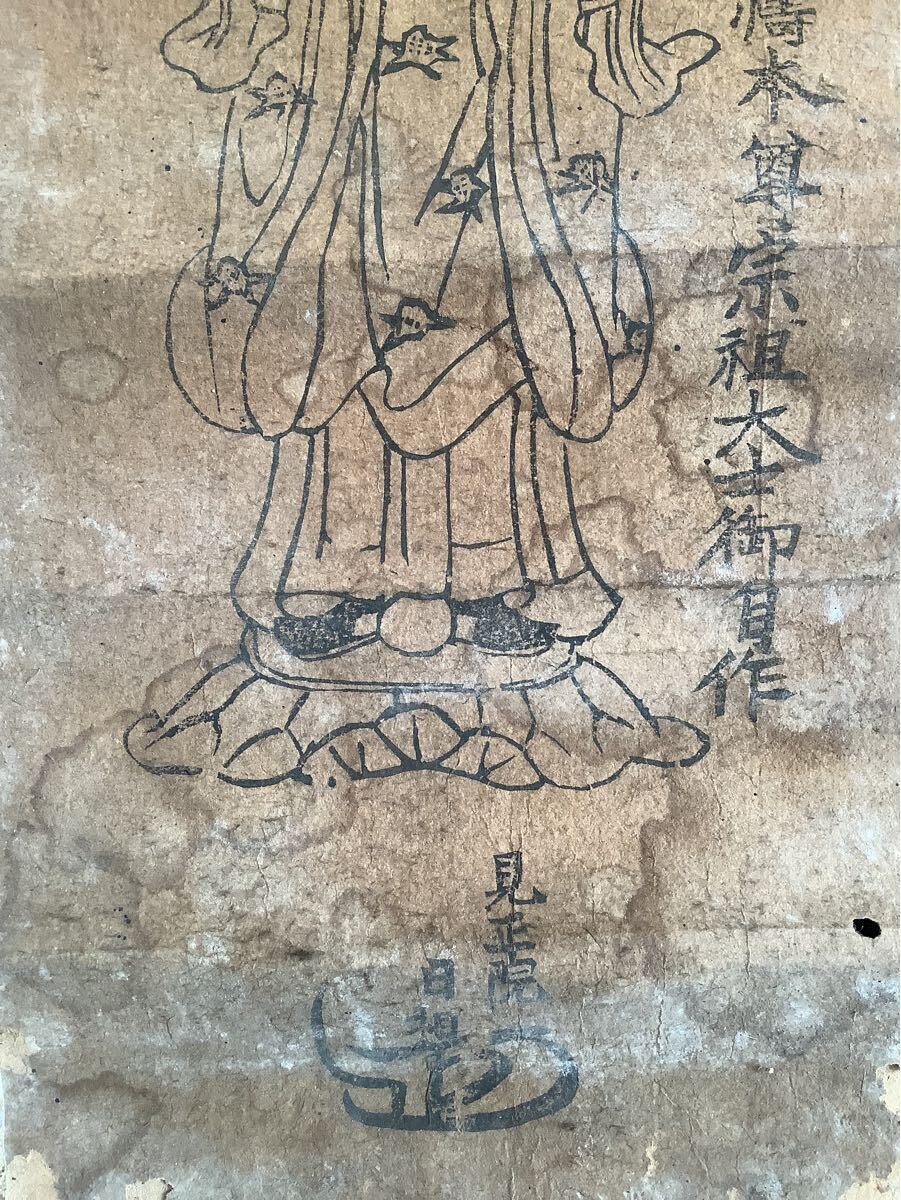 本尊宗祖大士御自作
見正院
日